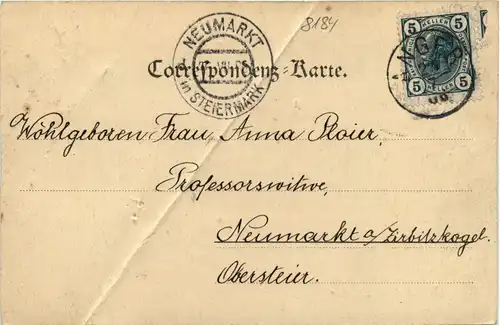 8184
NEUMARKT
in STEIERMARK
5 HELLER 5
5 5
Correspondenz-Karte.
Wohlgeboren Frau Anna Ploier,
Professorswitwe,
Neumarkt a/Zirbitzkogel.
Obersteier.